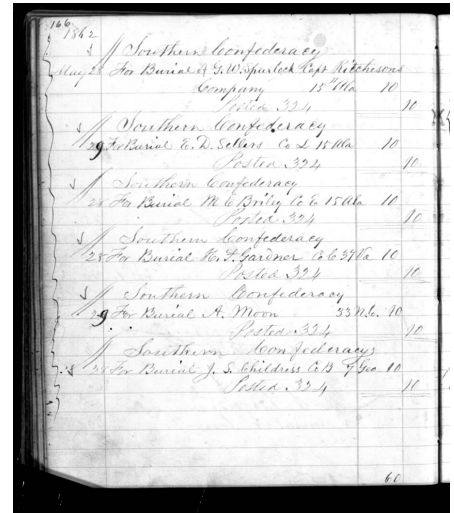 166
1862
// Southern Confederacy
May 28 For Burial of G. W. Spurlock Capt Ritchisons
Company 15th Ala 10
Posted 324 10
// Southern Confederacy
29 For Burial E. D. Sellers Co L 15 Ala 10
Posted 324 10
// Southern Confederacy
28 For Burial M. E Briley Co E 15 Ala 10
Posted 324 10
// Southern Confederacy
28 For Burial H. F. Gardner Co C 37 Va 10
Posted 324 10
// Southern Confederacy
29 For Burial A. Moon 33 N.C. 10
Posted 324 10
// Southern Confederacy
28 For Burial J. S. Childress Co B 7 Geo 10
Posted 324 10
60